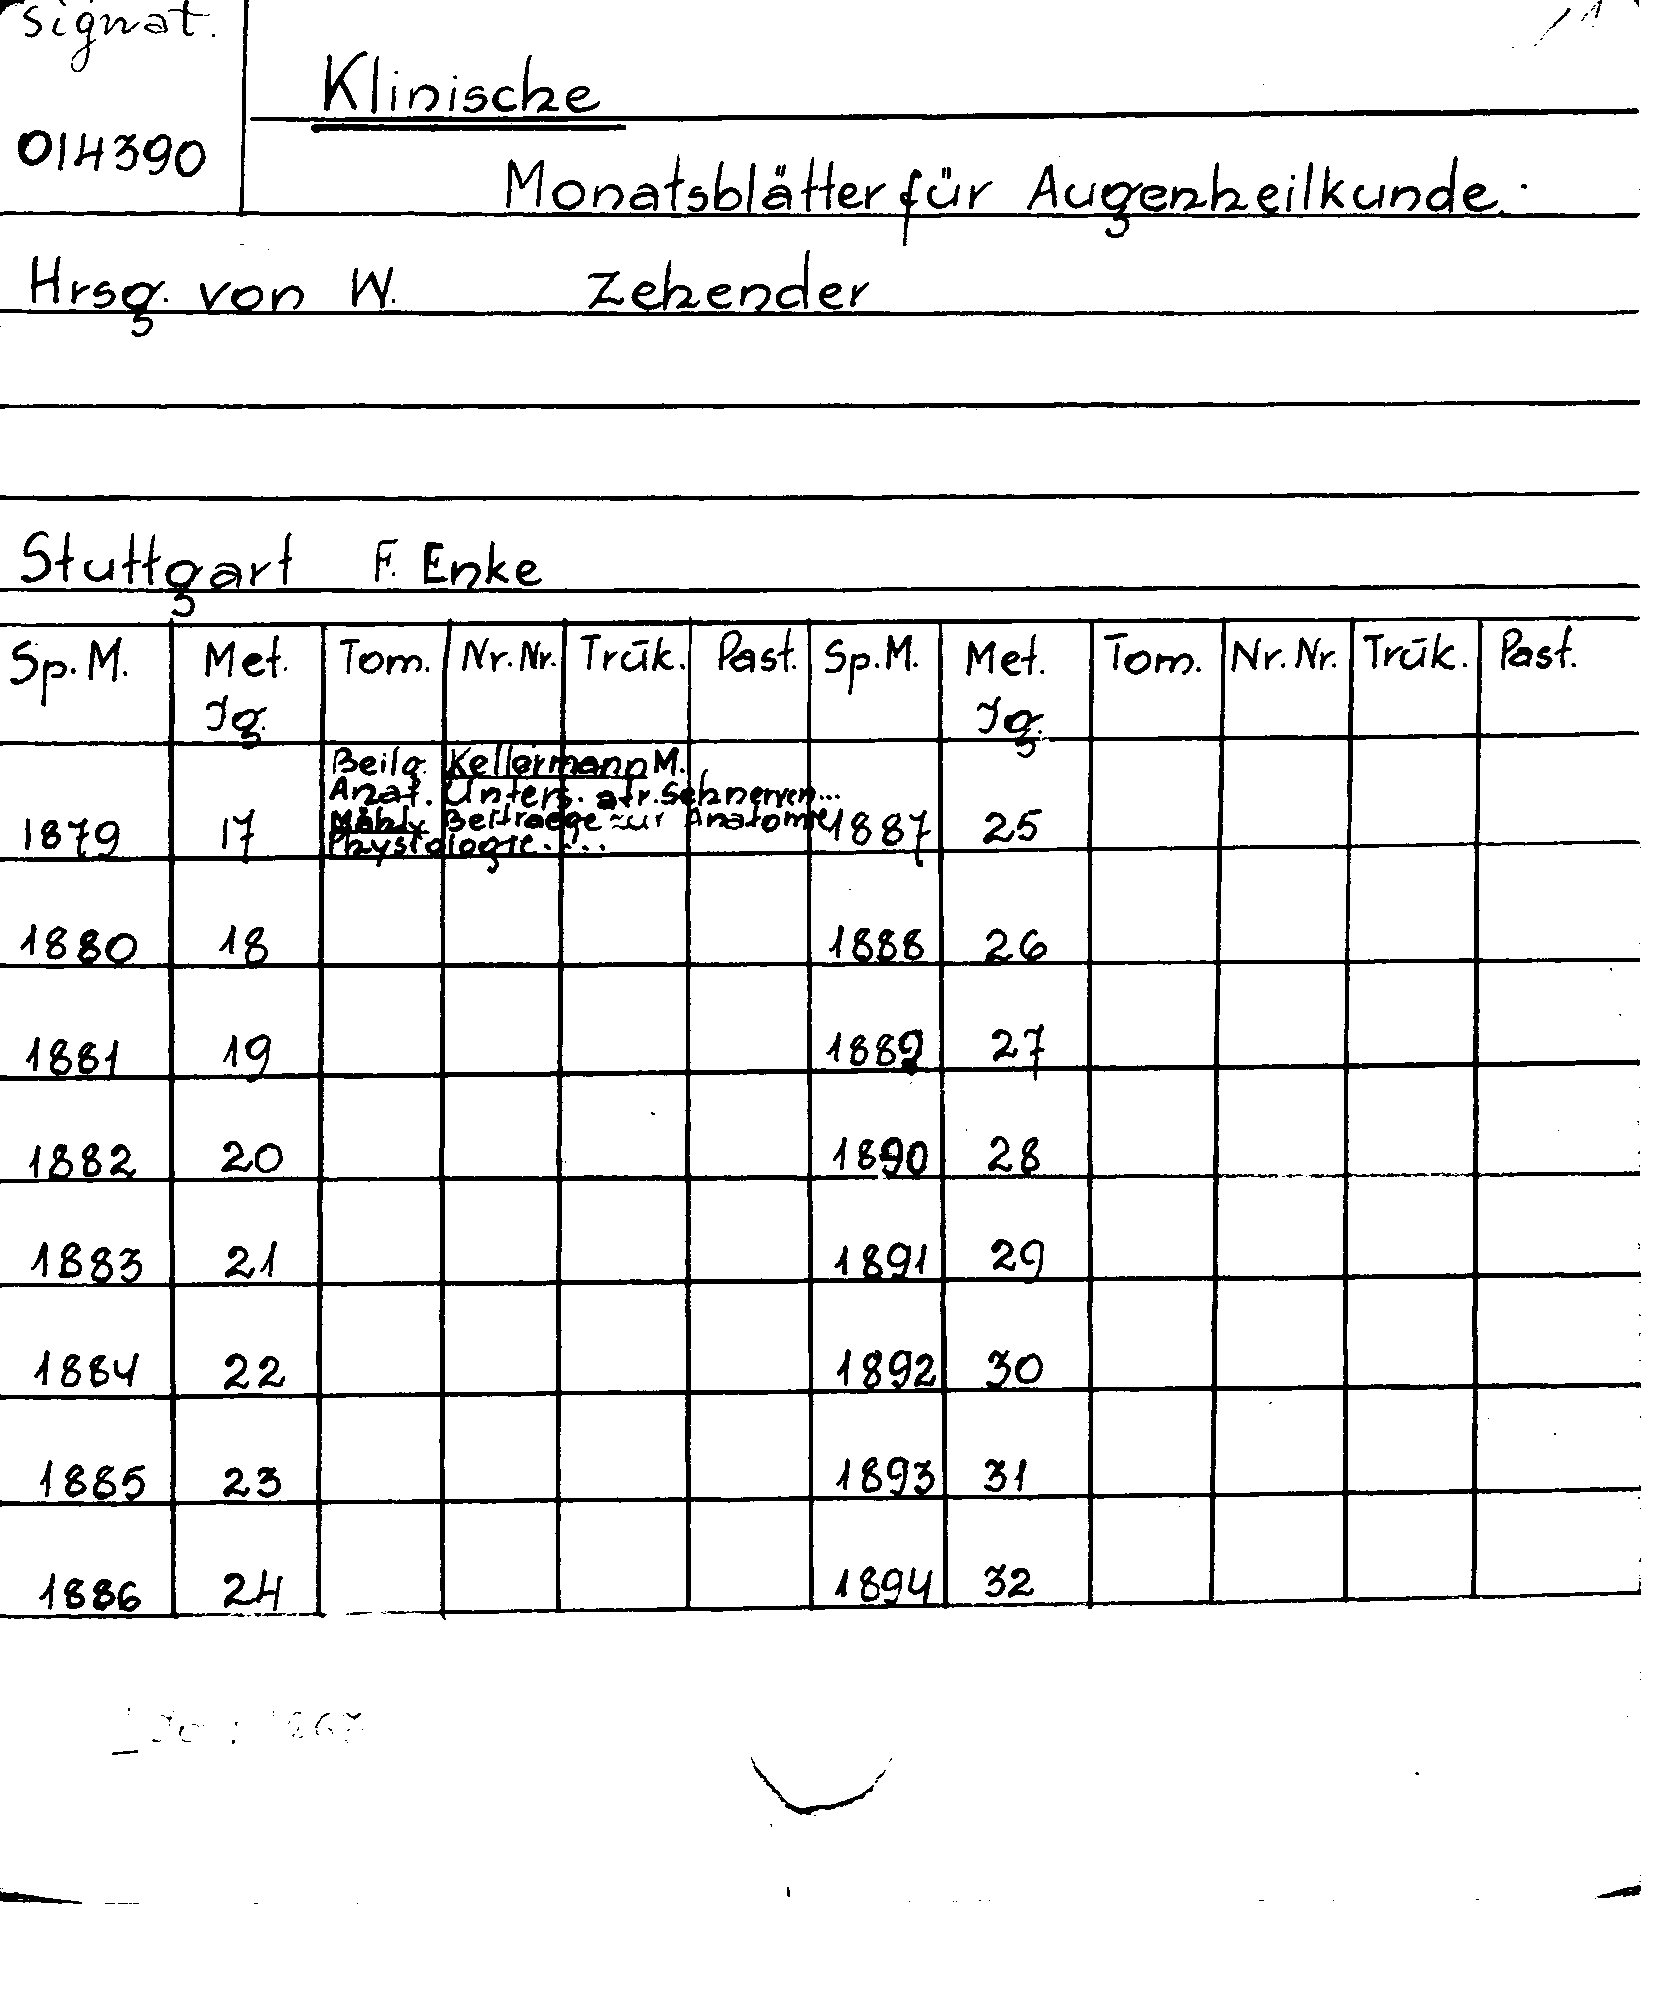 Signat.
Klinische
014390
Monatsblätter für Augenheilkunde.
Hrsg. von W. Zehender
Stuttgart F. Enke
Sp. M. Met. Jg. Tom. Nr. Nr. Trūk. Past. Sp. M. Met. Jg. Tom. Nr. Nr. Trūk. Past.
Beilg. Kellermann M.
Anat. Unters. atr. Sehnerven...
Beitraege zur Anatomie
Physiologie....
1879 17 1887 25
1880 18 1888 26
1881 19 1889 27
1882 20 1890 28
1883 21 1891 29
1884 22 1892 30
1885 23 1893 31
1886 24 1894 32